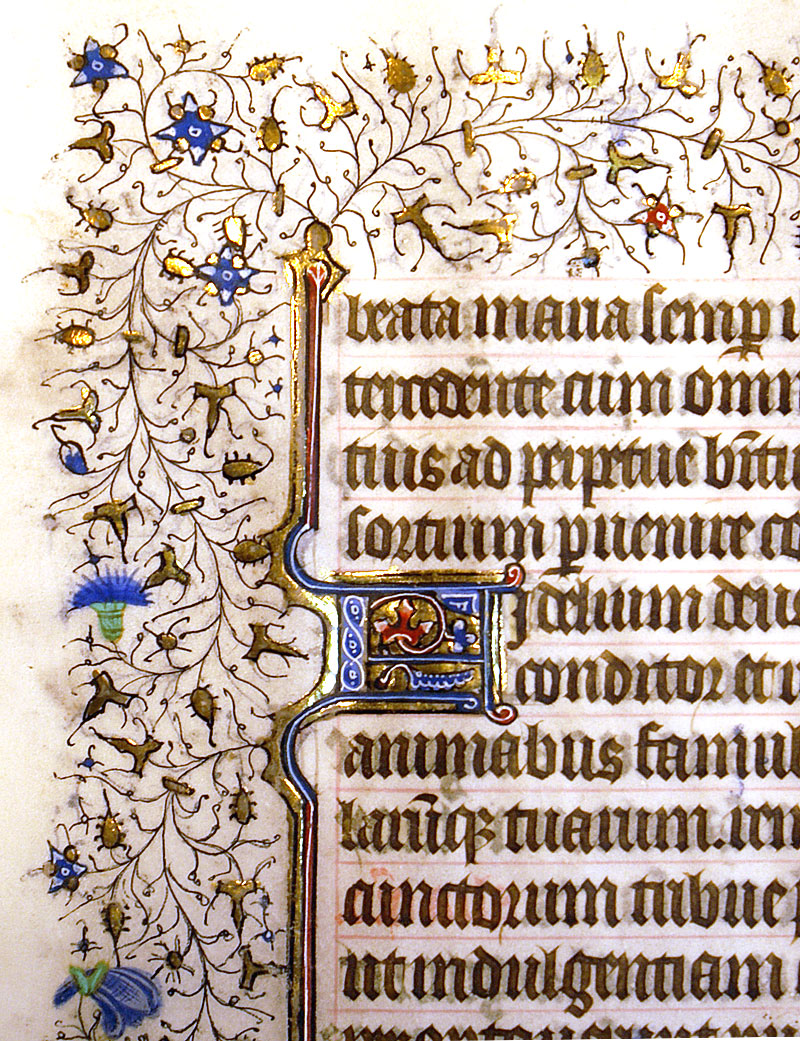 beata maria semꝑ i
tercedente cum omni
tius ad perpetue bt̄itu
sortium ꝑuenire co
Fidelium deus
conditor et
animabus famul
larūqꝫ tuarum. rem
cunctorum tribue p
ut indulgentiam